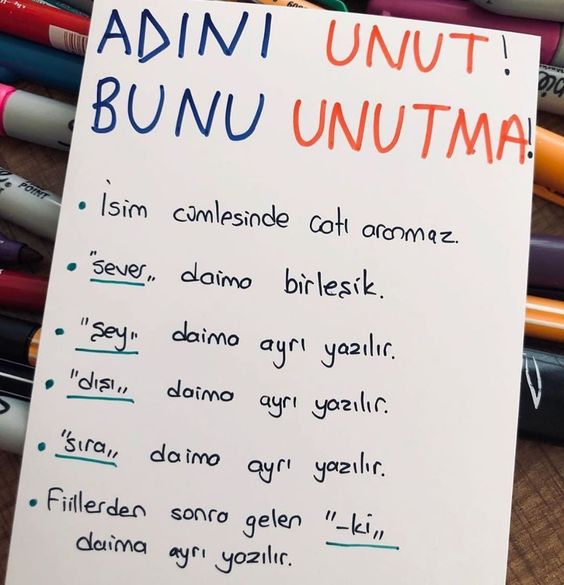 ADINI UNUT!
BUNU UNUTMA!
• İsim cümlesinde çatı aranmaz.
• "sever„ daima birleşik.
• "şey„ daima ayrı yazılır.
• "dışı„ daima ayrı yazılır.
• "sıra„ daima ayrı yazılır.
• Fiillerden sonra gelen "-ki„
daima ayrı yazılır.
POINT